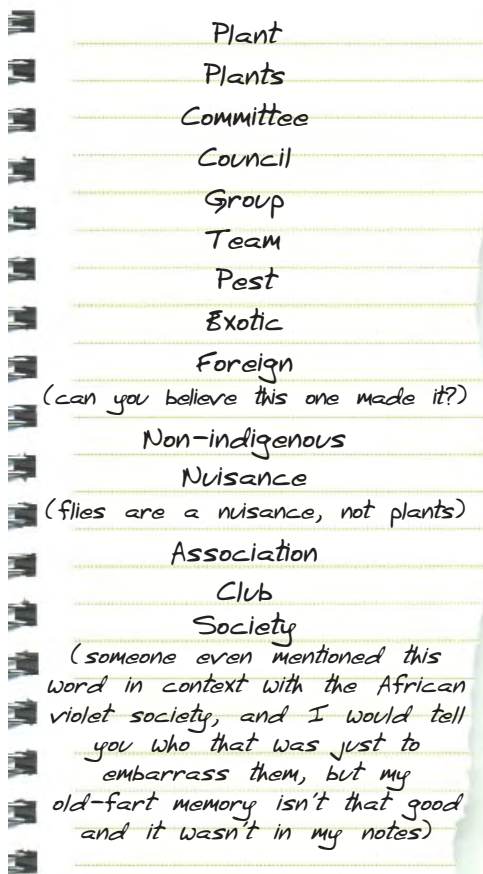 Plant
Plants
Committee
Council
Group
Team
Pest
Exotic
Foreign
(can you believe this one made it?)
Non-indigenous
Nuisance
(flies are a nuisance, not plants)
Association
Club
Society
(someone even mentioned this
word in context with the African
violet society, and I would tell
you who that was just to
embarrass them, but my
old-fart memory isn't that good
and it wasn't in my notes)